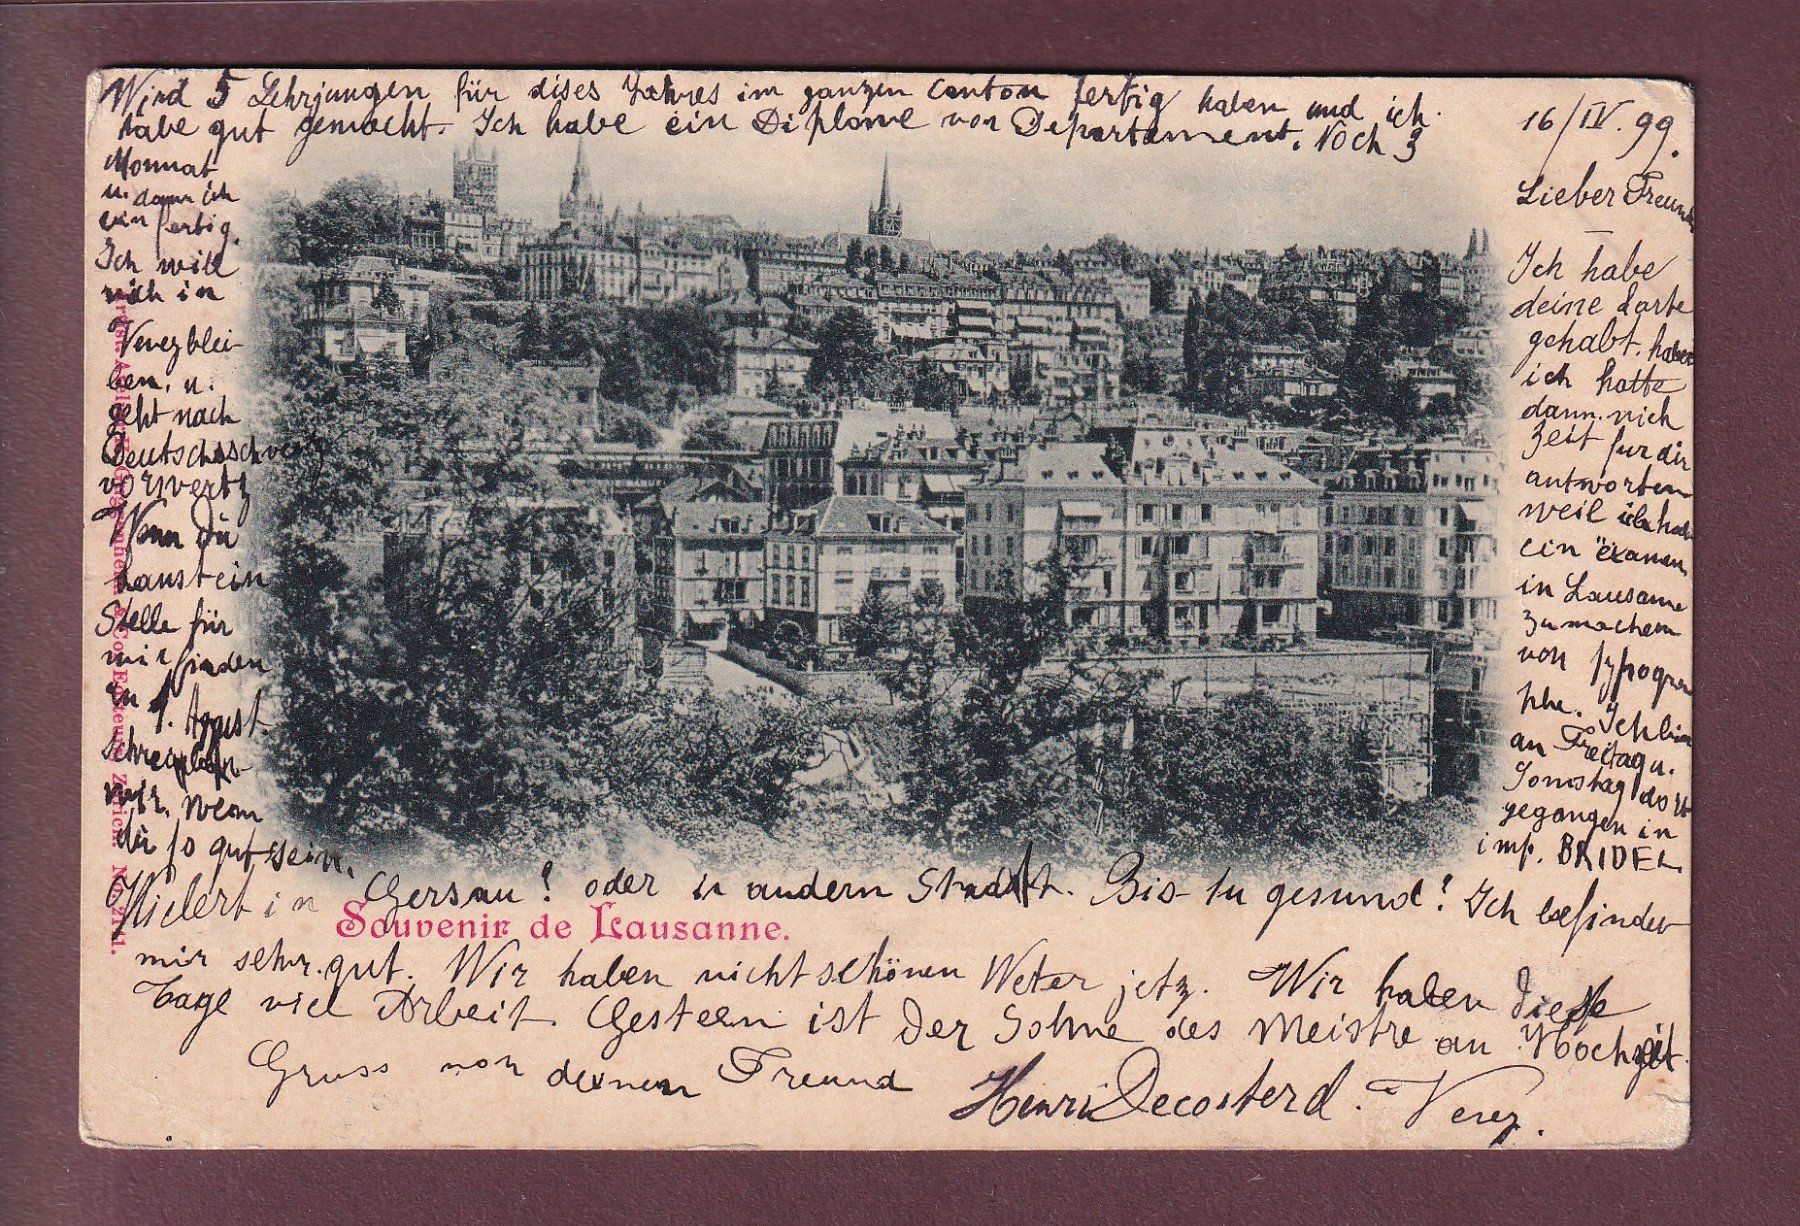 16/IV. 99.
Lieber Freund
Ich habe
deine Carte
gehabt. habe
ich hatte
dann. nich
Zeit fur dir
antworten
weil ich hab
ein examen
in Lausanne
zu machem
von typogra
phe. Ich bin
an Freitag u.
Somstag dort
gegangen in
imp. BRIDEL
Wird 5 Lehrjungen für dises Jahres im ganzen canton fertig haben und ich
habe gut gemacht. Ich habe ein Diplome von Departement. Noch 3
Monnat
u. dann ich
ein fertig.
Ich will
nich in
Vevey blei-
ben. u.
geht nach
Deutschschweiz
vorwertz
Wenn Du
kanst ein
Stelle für
mir finden
zu 1. August.
mir. wenn
du so gut sein.
in Gersau? oder in andern Stadt. Bis-tu gesund? Ich befinder
Souvenir de Lausanne.
mir sehr gut. Wir haben nicht schönen Weter jetz. Wir haben diese
Tage viel Arbeit. Gesteern ist der Sohne des Meistre an Hochzeit.
Gruss von deinen Freund Henri Decosterd. Vevey.
Co. Editeurs, Zürich. No. 2111.